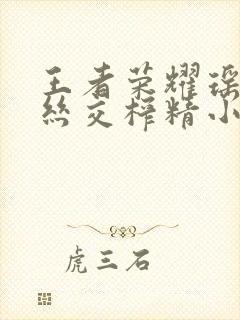 王者荣耀瑶
丝交榨精小
虎三石